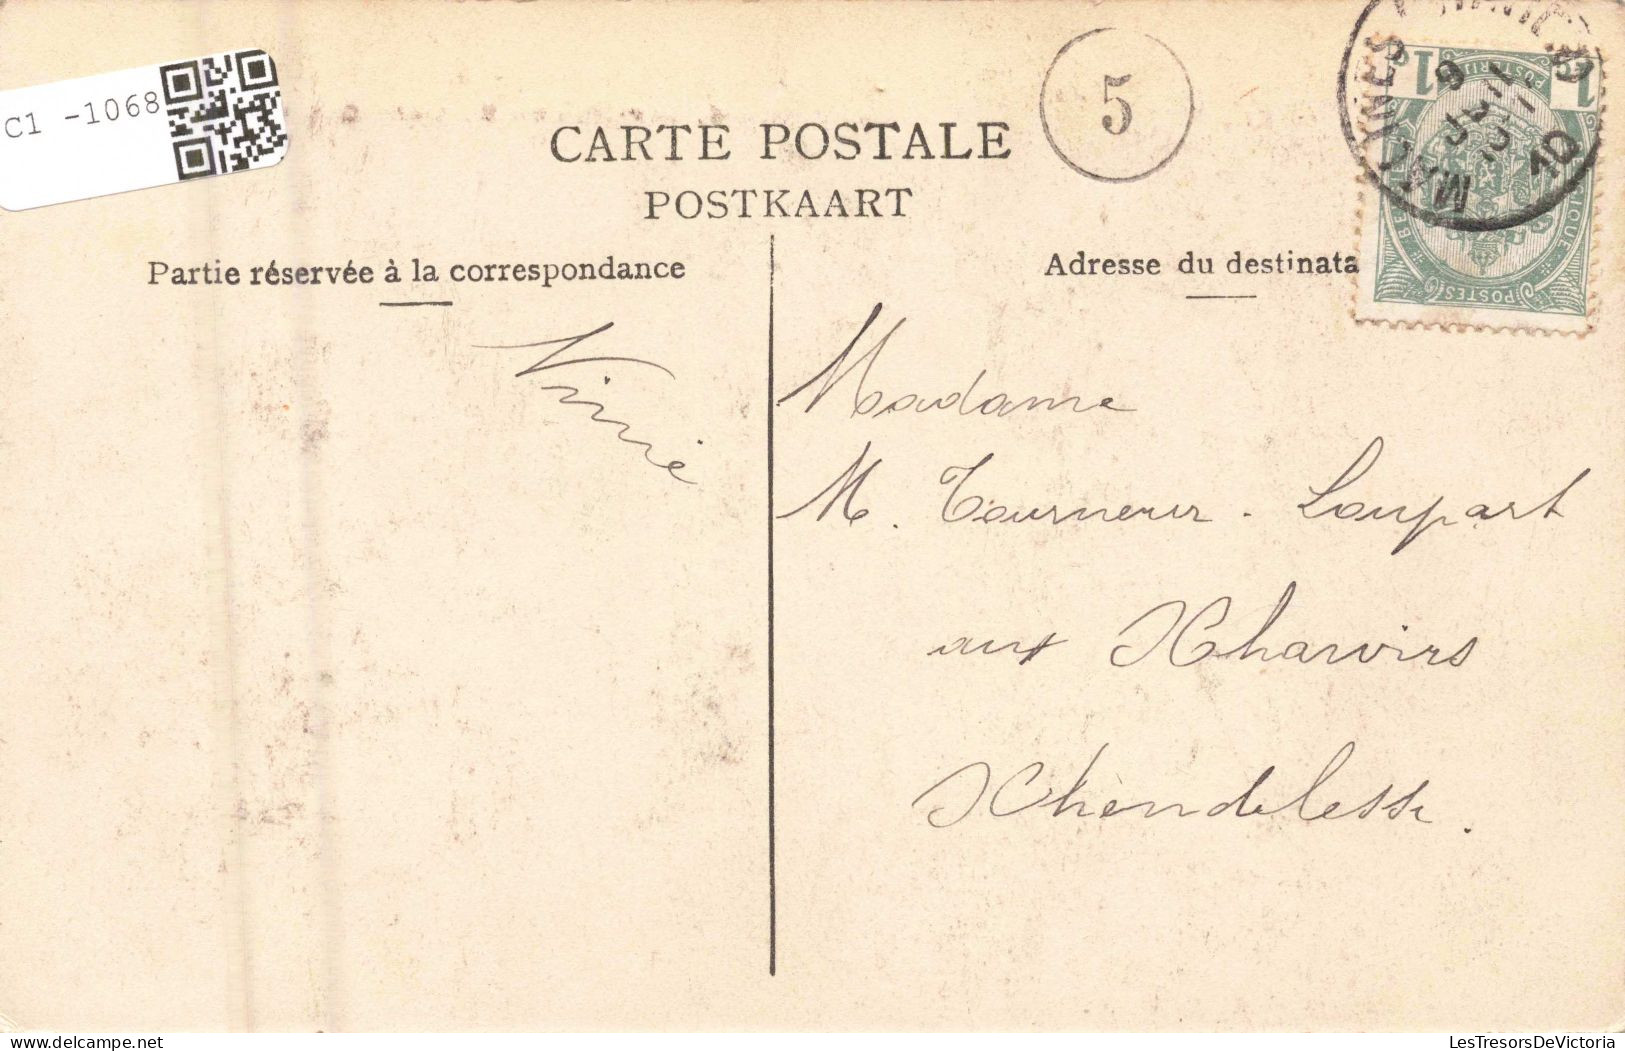 C1 -1068
5
CARTE POSTALE
POSTKAART
Partie réservée à la correspondance
Adresse du destinata
MALINES
10
1
1
BELGIQUE
POSTES
Madame
M. Tourneur - Loupart
aux Xhawirs
Xhendelesse.
LesTresorsDeVictoria
delcampe.net
LesTresorsDeVictoria